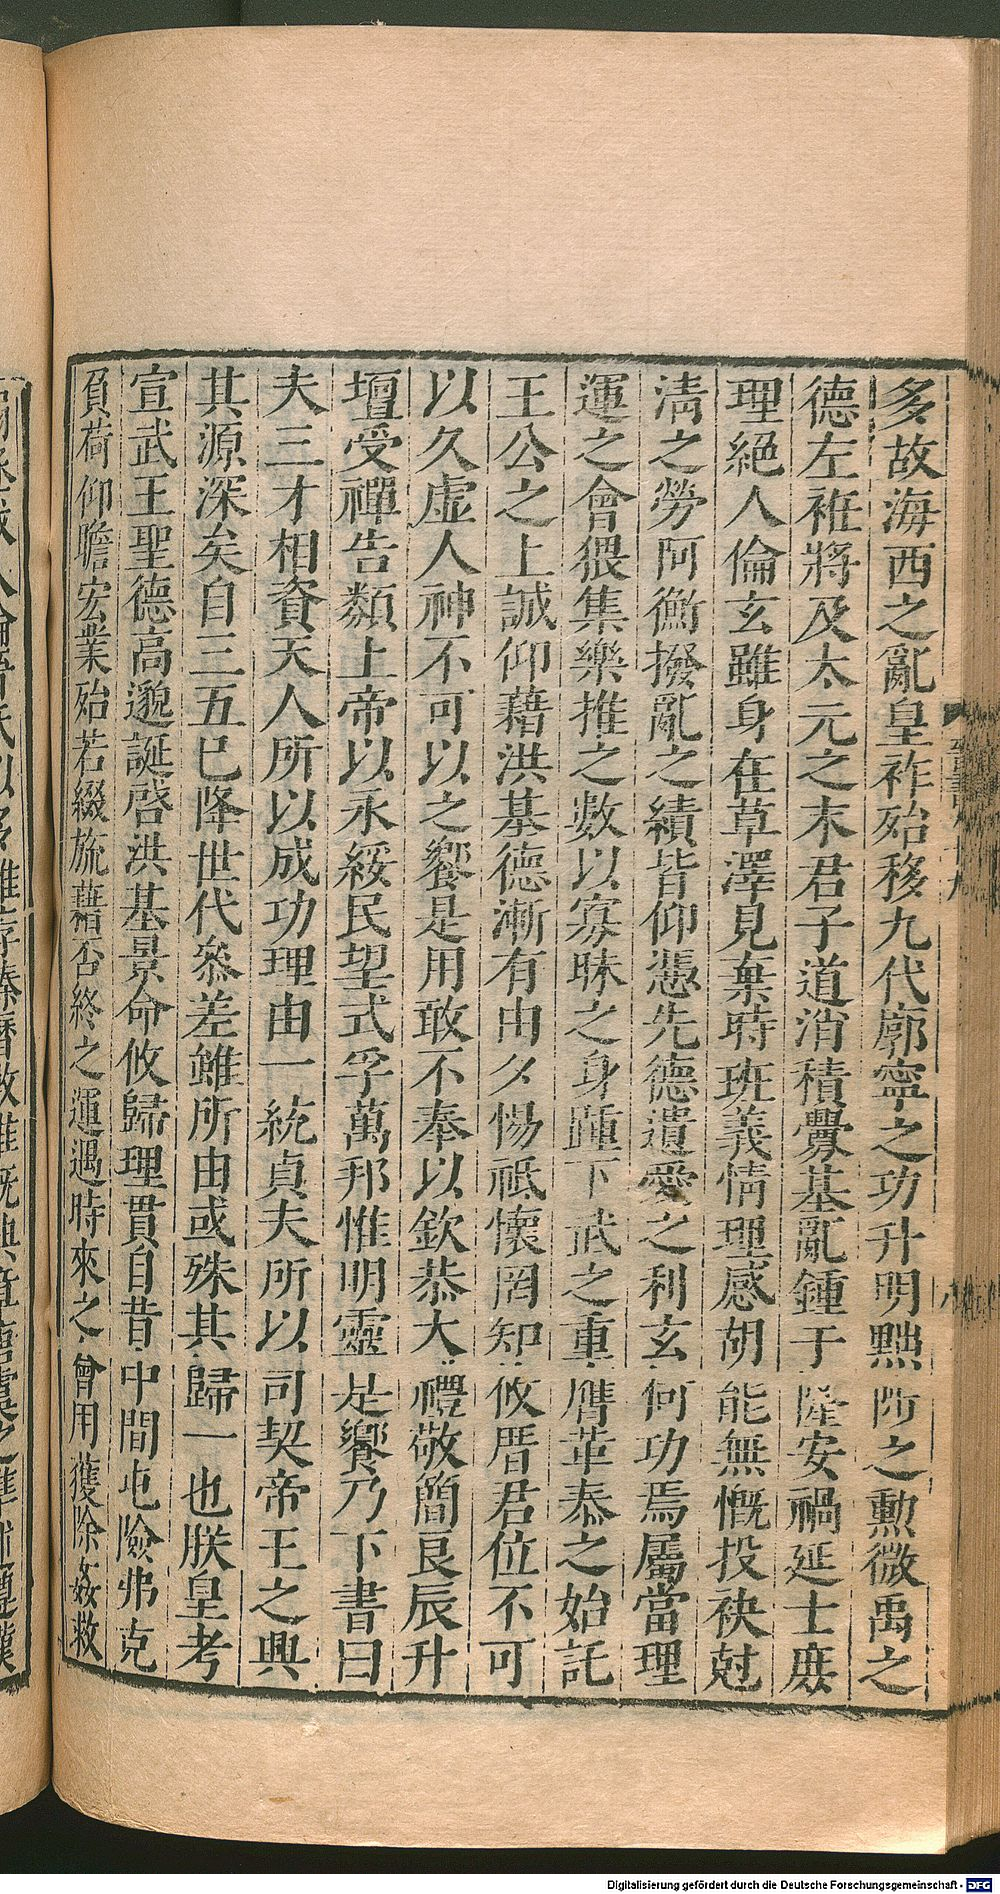 多故海西之亂皇祚殆移九代廓寧之功升明黜陟之勲微禹之
德左袵將及太元之末君子道消積釁基亂鍾于隆安禍延士庶
理絕人倫玄雖身在草澤見棄時班義情理感胡能無慨投袂尅
清之勞阿衡撥亂之績皆仰憑先德遺愛之利玄何功焉屬當理
運之會猥集樂推之數以寡昧之身踵下武之重膺革泰之始託
王公之上誠仰藉洪基德漸有由夕惕祗懷罔知攸厝君位不可
以久虚人神不可以之饗是用敢不奉以欽恭大禮敬簡良辰升
壇受禪告類上帝以永綏民望式孚萬邦惟明靈是饗乃下書曰
夫三才相資天人所以成功理由一統貞夫所以司契帝王之興
其源深矣自三五已降世代叅差雖所由或殊其歸一也朕皇考
宣武王聖德高邈誕啓洪基景命攸歸理貫自昔中間屯險弗克
負荷仰瞻宏業殆若綴旒藉否終之運遇時來之會用獲除姦救
Digitalisierung gefördert durch die Deutsche Forschungsgemeinschaft - DFG